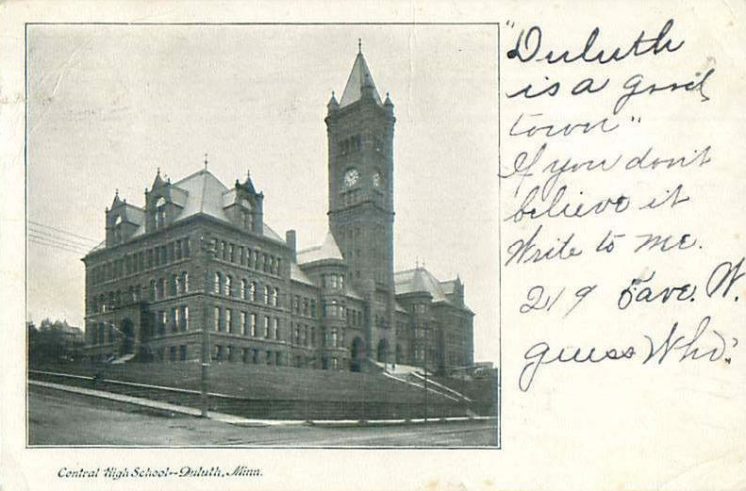 "Duluth
is a good
town"
If you don't
believe it
Write to me.
219 6ave. W.
guess Who?
Central High School--Duluth, Minn.